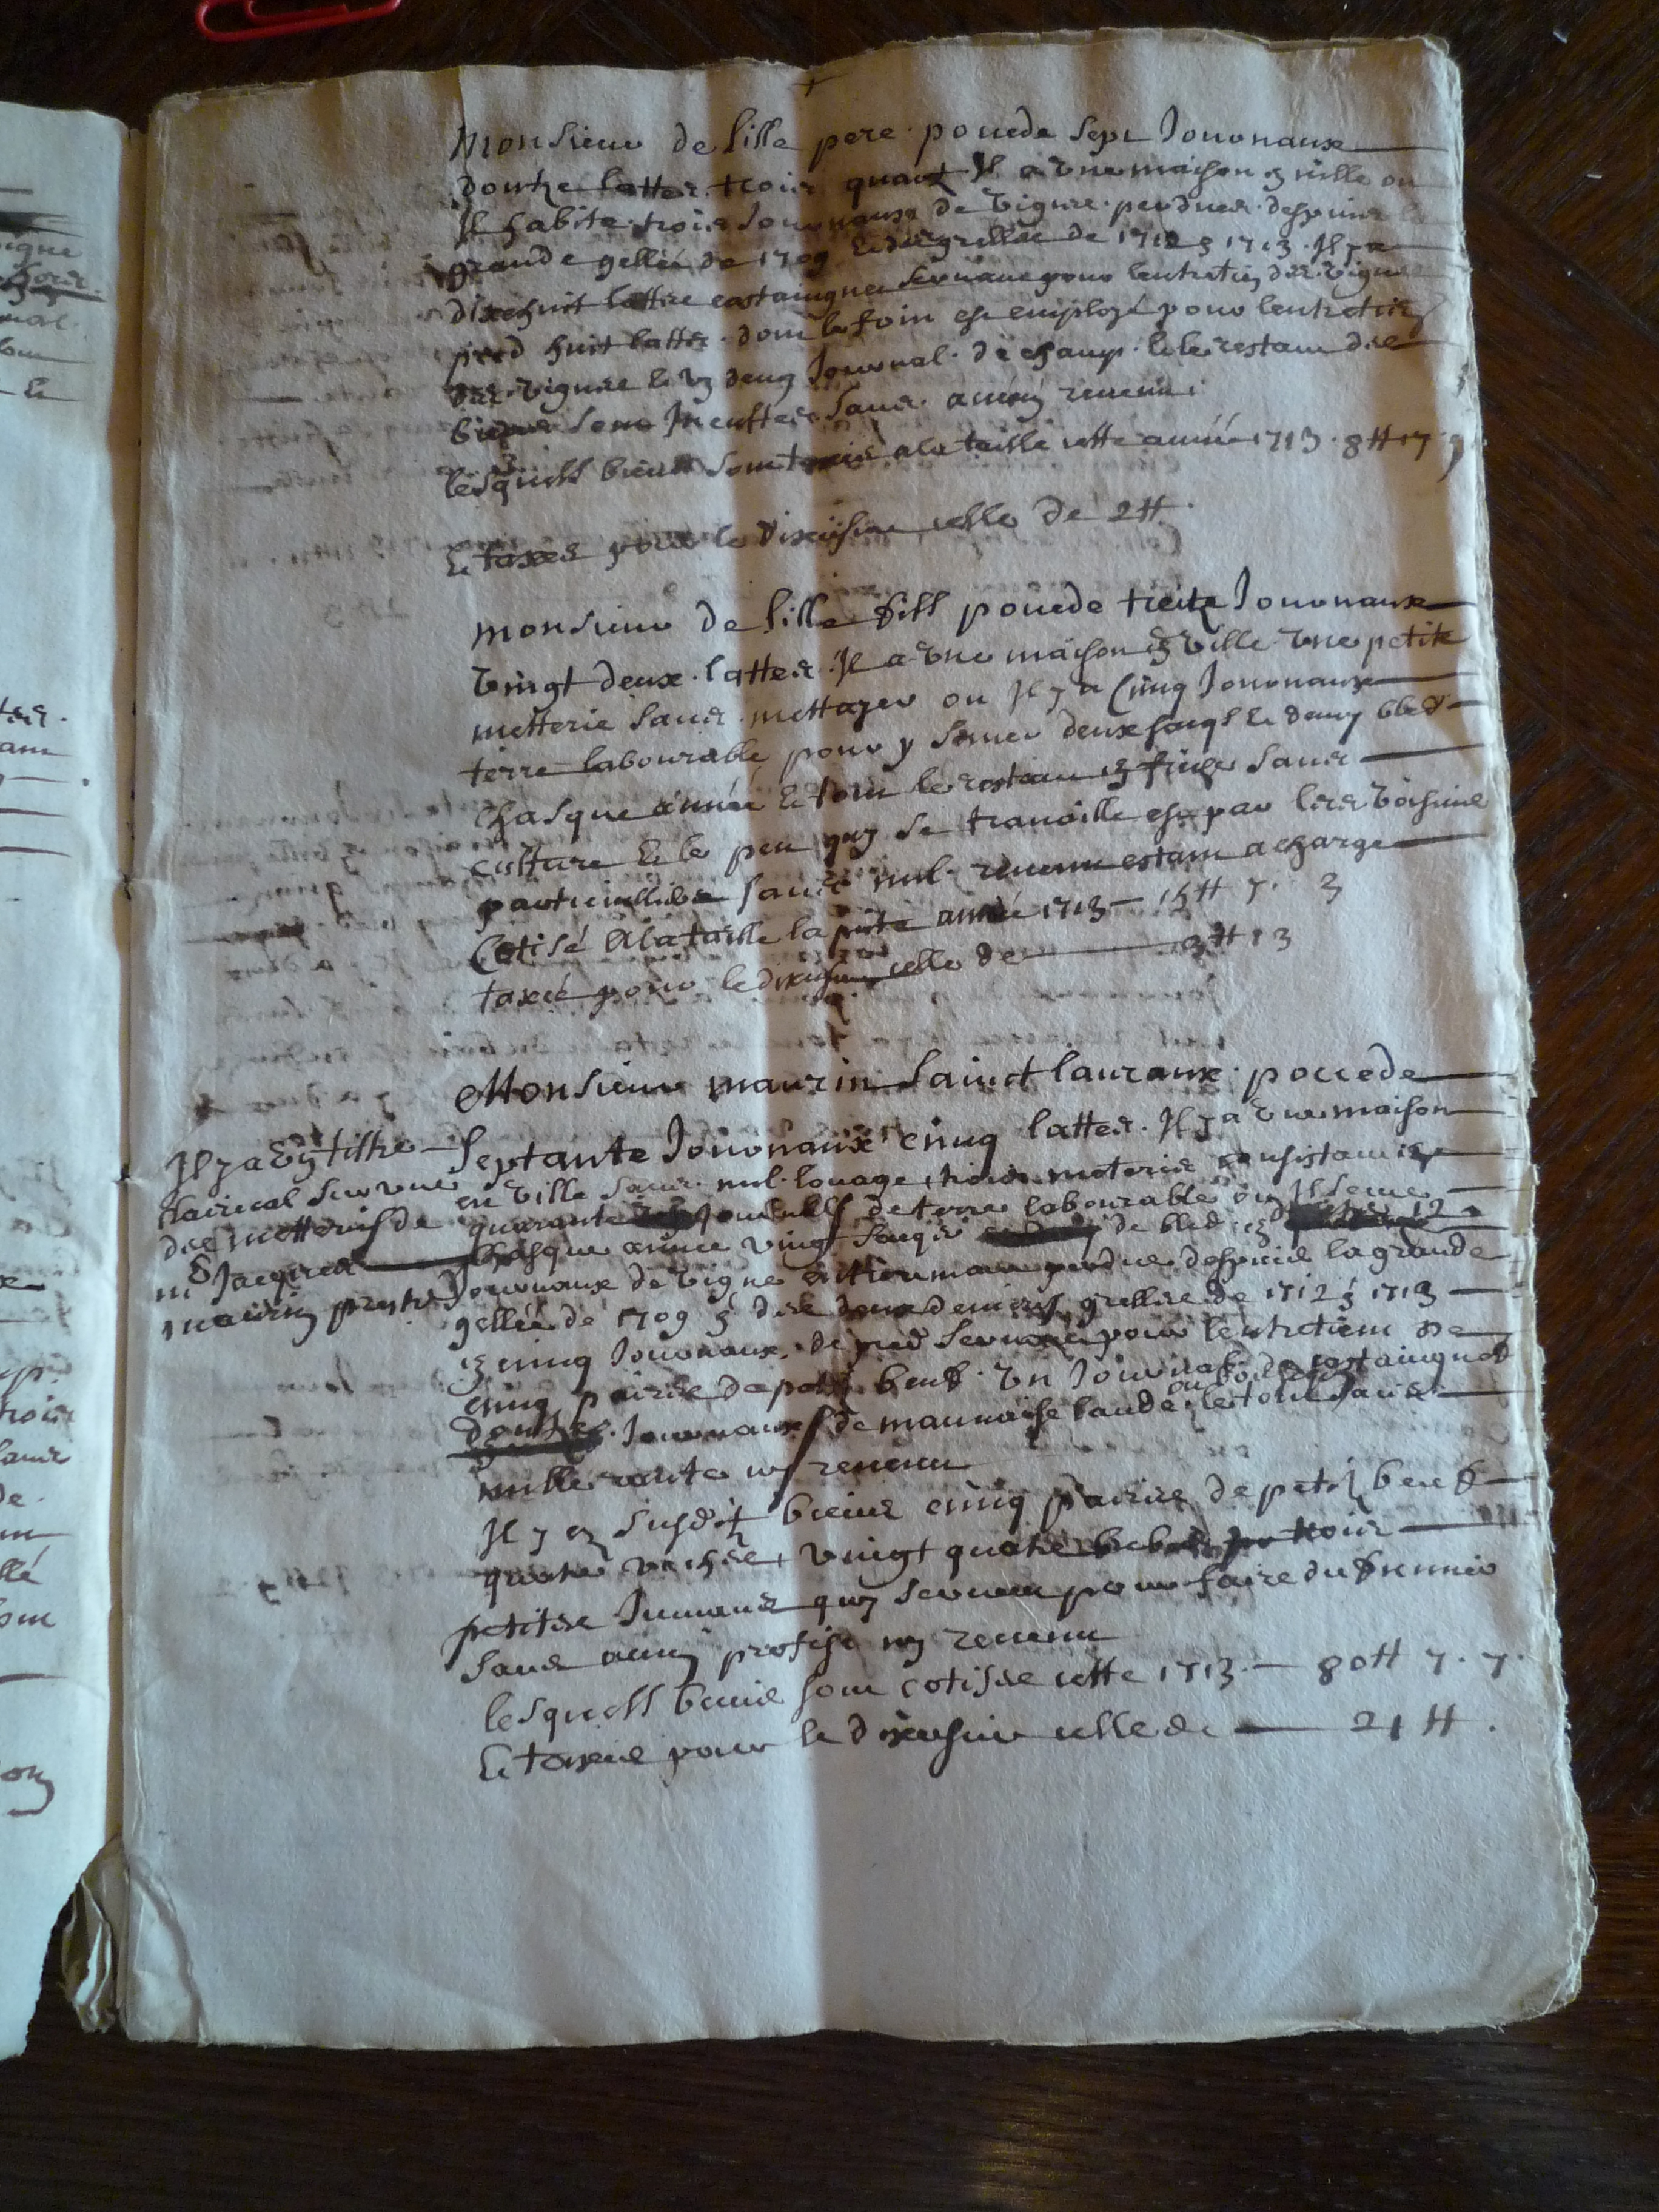 Monsieur de lille pere possede sept Journaux
doutze lattes trois quart Il a une maison en ville ou
Il habite trois Journaux de vigne perdues despuis la
grande gellée de 1709 et des gresles de 1712 & 1713. Il y a
dixehuit lattes castaingnes servant pour lentretien des vignes
pred huit lattes. dont le foin est employé pour lentretien
des vignes et un demy Journal de champ. et le restant des
biens sont Incultes sans aucun revenu.
lesquels biens sont mis a la taille cette année 1713. 8 ₶ 17. 9
Et taxés pour le dixiesme celle de 2 ₶.
Monsieur de lille fils possede treitze Journaux
vingt deux lattes. Il a une maison en ville une petite
metterie sans mettayer ou Il y a Cinq Journaux
terre labourable pour y semer deux sacqs et demy bled
chasque année et tout le restant en friche sans
culture et le peu quy se travaille est par les voisins
particulliers sans nul revenu estant a charge
Cotisé a la taille la pnte année 1713 — 15 ₶ 7. 3
taxcé pour le dixiesme celle de — 3 ₶ 13
Monsieur maurin Sainct lauraux possede
Septante Journaux cinq lattes. Il y a une maison
en ville sans nul louage, trois meteries consistant en
quarante Journals de terre labourable ou Il seme
chasque année vingt sacqs de bled, & 12
Journaux de vigne entierement perdues despuis la grande
gellée de 1709 & des deux derniers gresles de 1712 & 1713
& cinq Journaux de pred servant pour lentretient de
cinq paires de petits beufs. Un Journal de castaingnes
doutze Journaux de mauvaise lande ou bois le tout sans
nulle rante ny revenu
Il y a Esdits biens cinq paires de petits beufs
quatre vaches, vingt quatre brebis trois
petites Jumans quy servent pour faire du fumier
sans aucun profist ny revenu
lesquels biens sont cotises cette 1713 — 80 ₶ 7. 7.
Et taxés pour le dixiesme celle de — 21 ₶.
Il y a un tiltre
clairical sur une
des metteries de
mr Jacques
maurin prestre